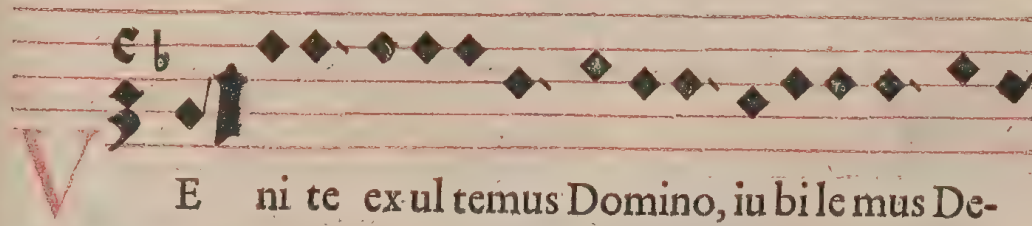 VE ni te ex ul temus Domino, iu bi le mus De-